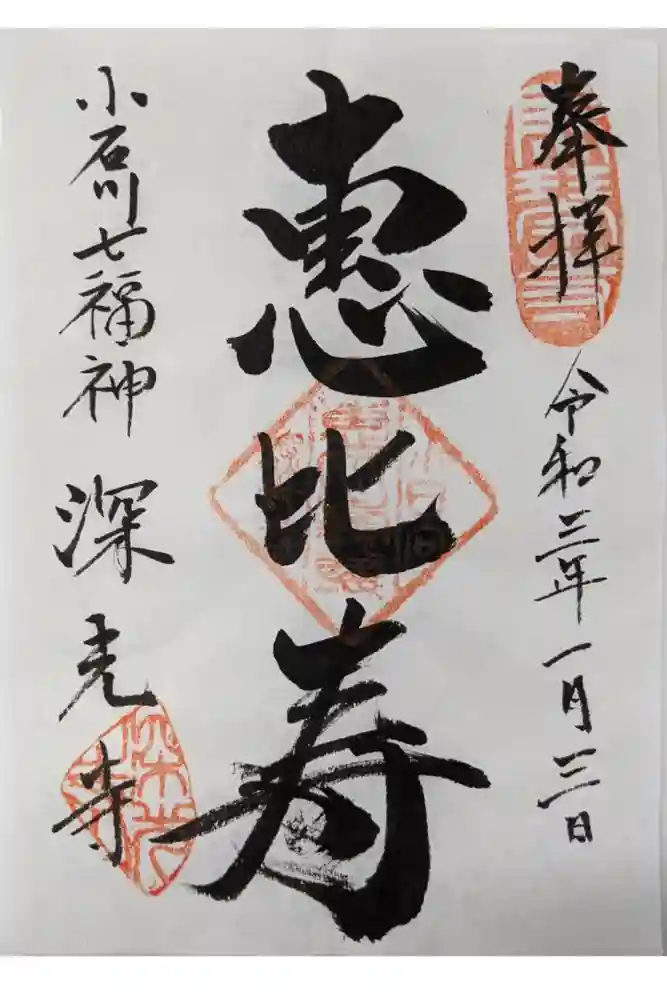 奉拝
令和三年一月三日
恵比寿
小石川七福神 深光寺